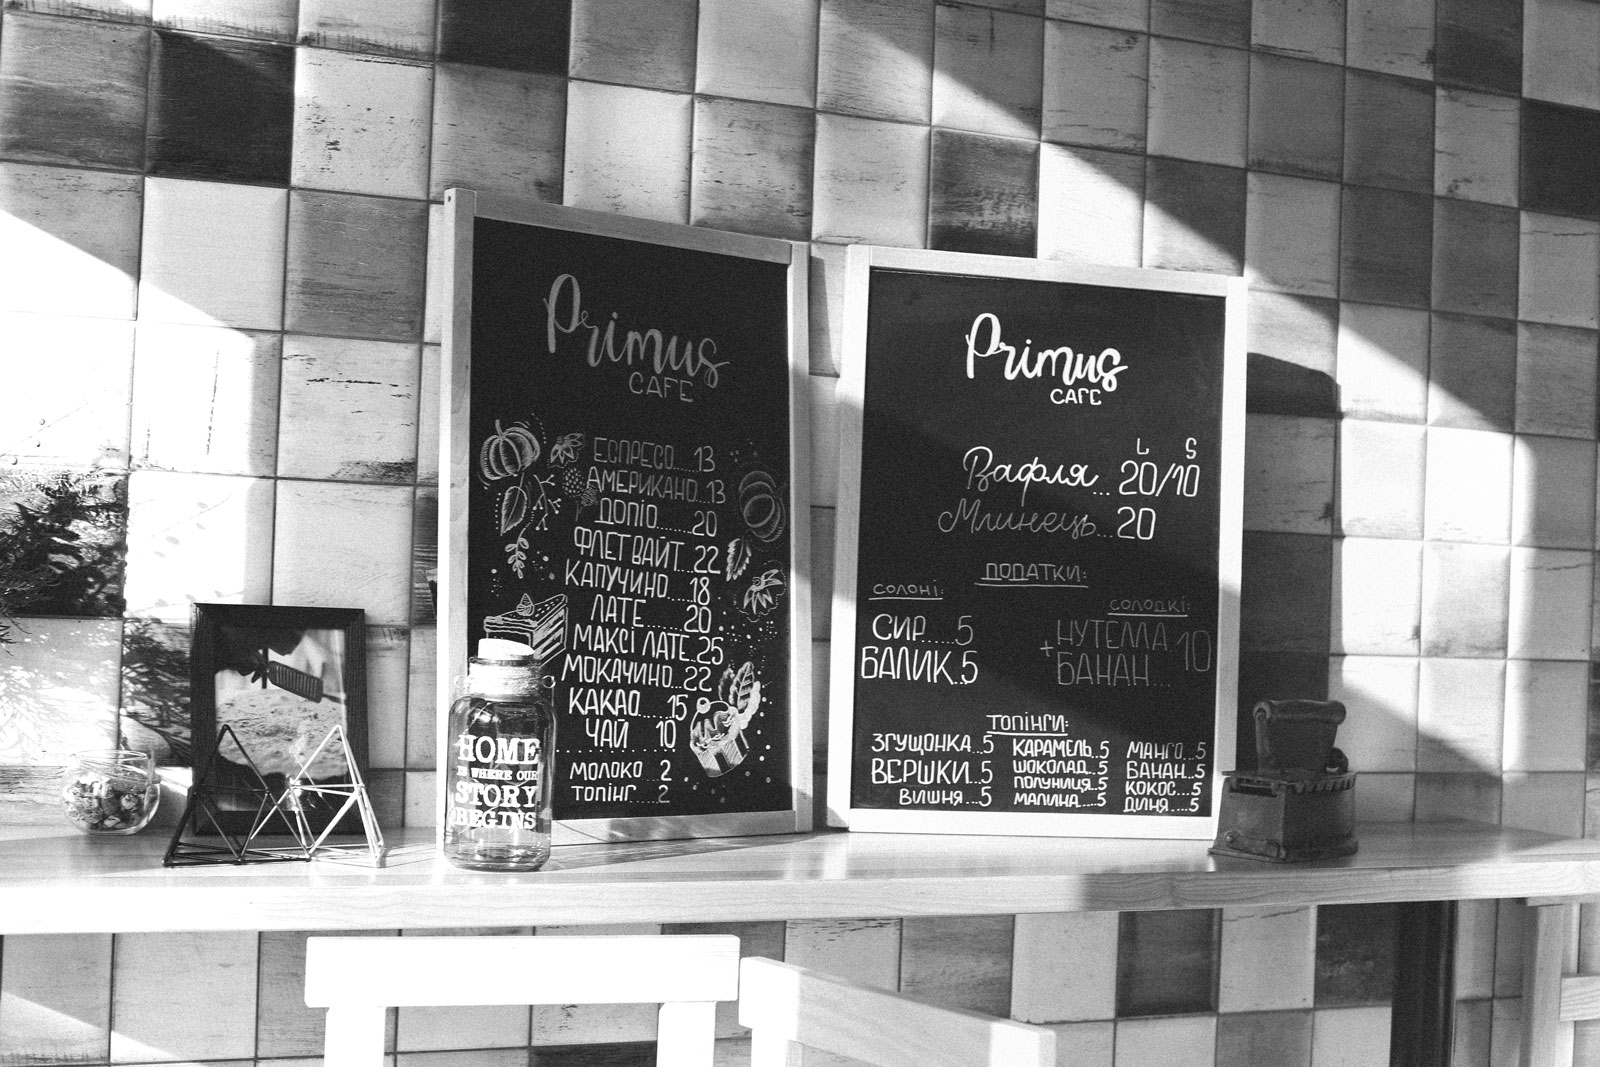 Primus
CAFE
ЕСПРЕСО.....13
АМЕРИКАНО..13
ДОПІО.......20
ФЛЕТ ВАЙТ..22
КАПУЧИНО 18
ЛАТЕ ...20
МАКСІ ЛАТЕ.25
МОКАЧИНО..22
КАКАО.....15
ЧАЙ 10
МОЛОКО..2
ТОПІНГ...2
HOME
IS WHERE OUR
STORY
BEGINS
Primus
CAFE
L S
Вафля... 20/10
Млинець...20
ДОДАТКИ:
СОЛОНІ:
СИР.....5
БАЛИК..5
СОЛОДКІ:
НУТЕЛЛА 10
+ БАНАН...
ТОПІНГИ:
ЗГУЩОНКА..5
ВЕРШКИ..5
ВИШНЯ...5
КАРАМЕЛЬ.5
ШОКОЛАД..5
ПОЛУНИЦЯ..5
МАЛИНА...5
МАНГО...5
БАНАН...5
КОКОС...5
ДИНЯ....5